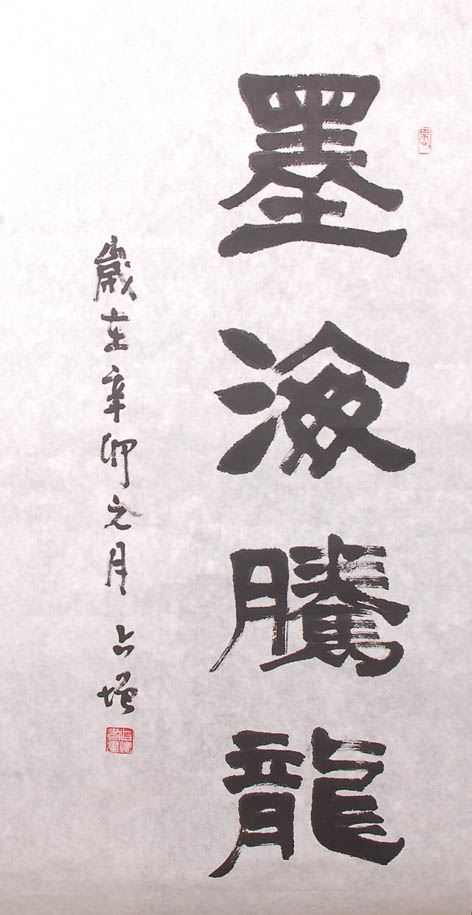 墨海騰龍
歲在辛卯元月 占增